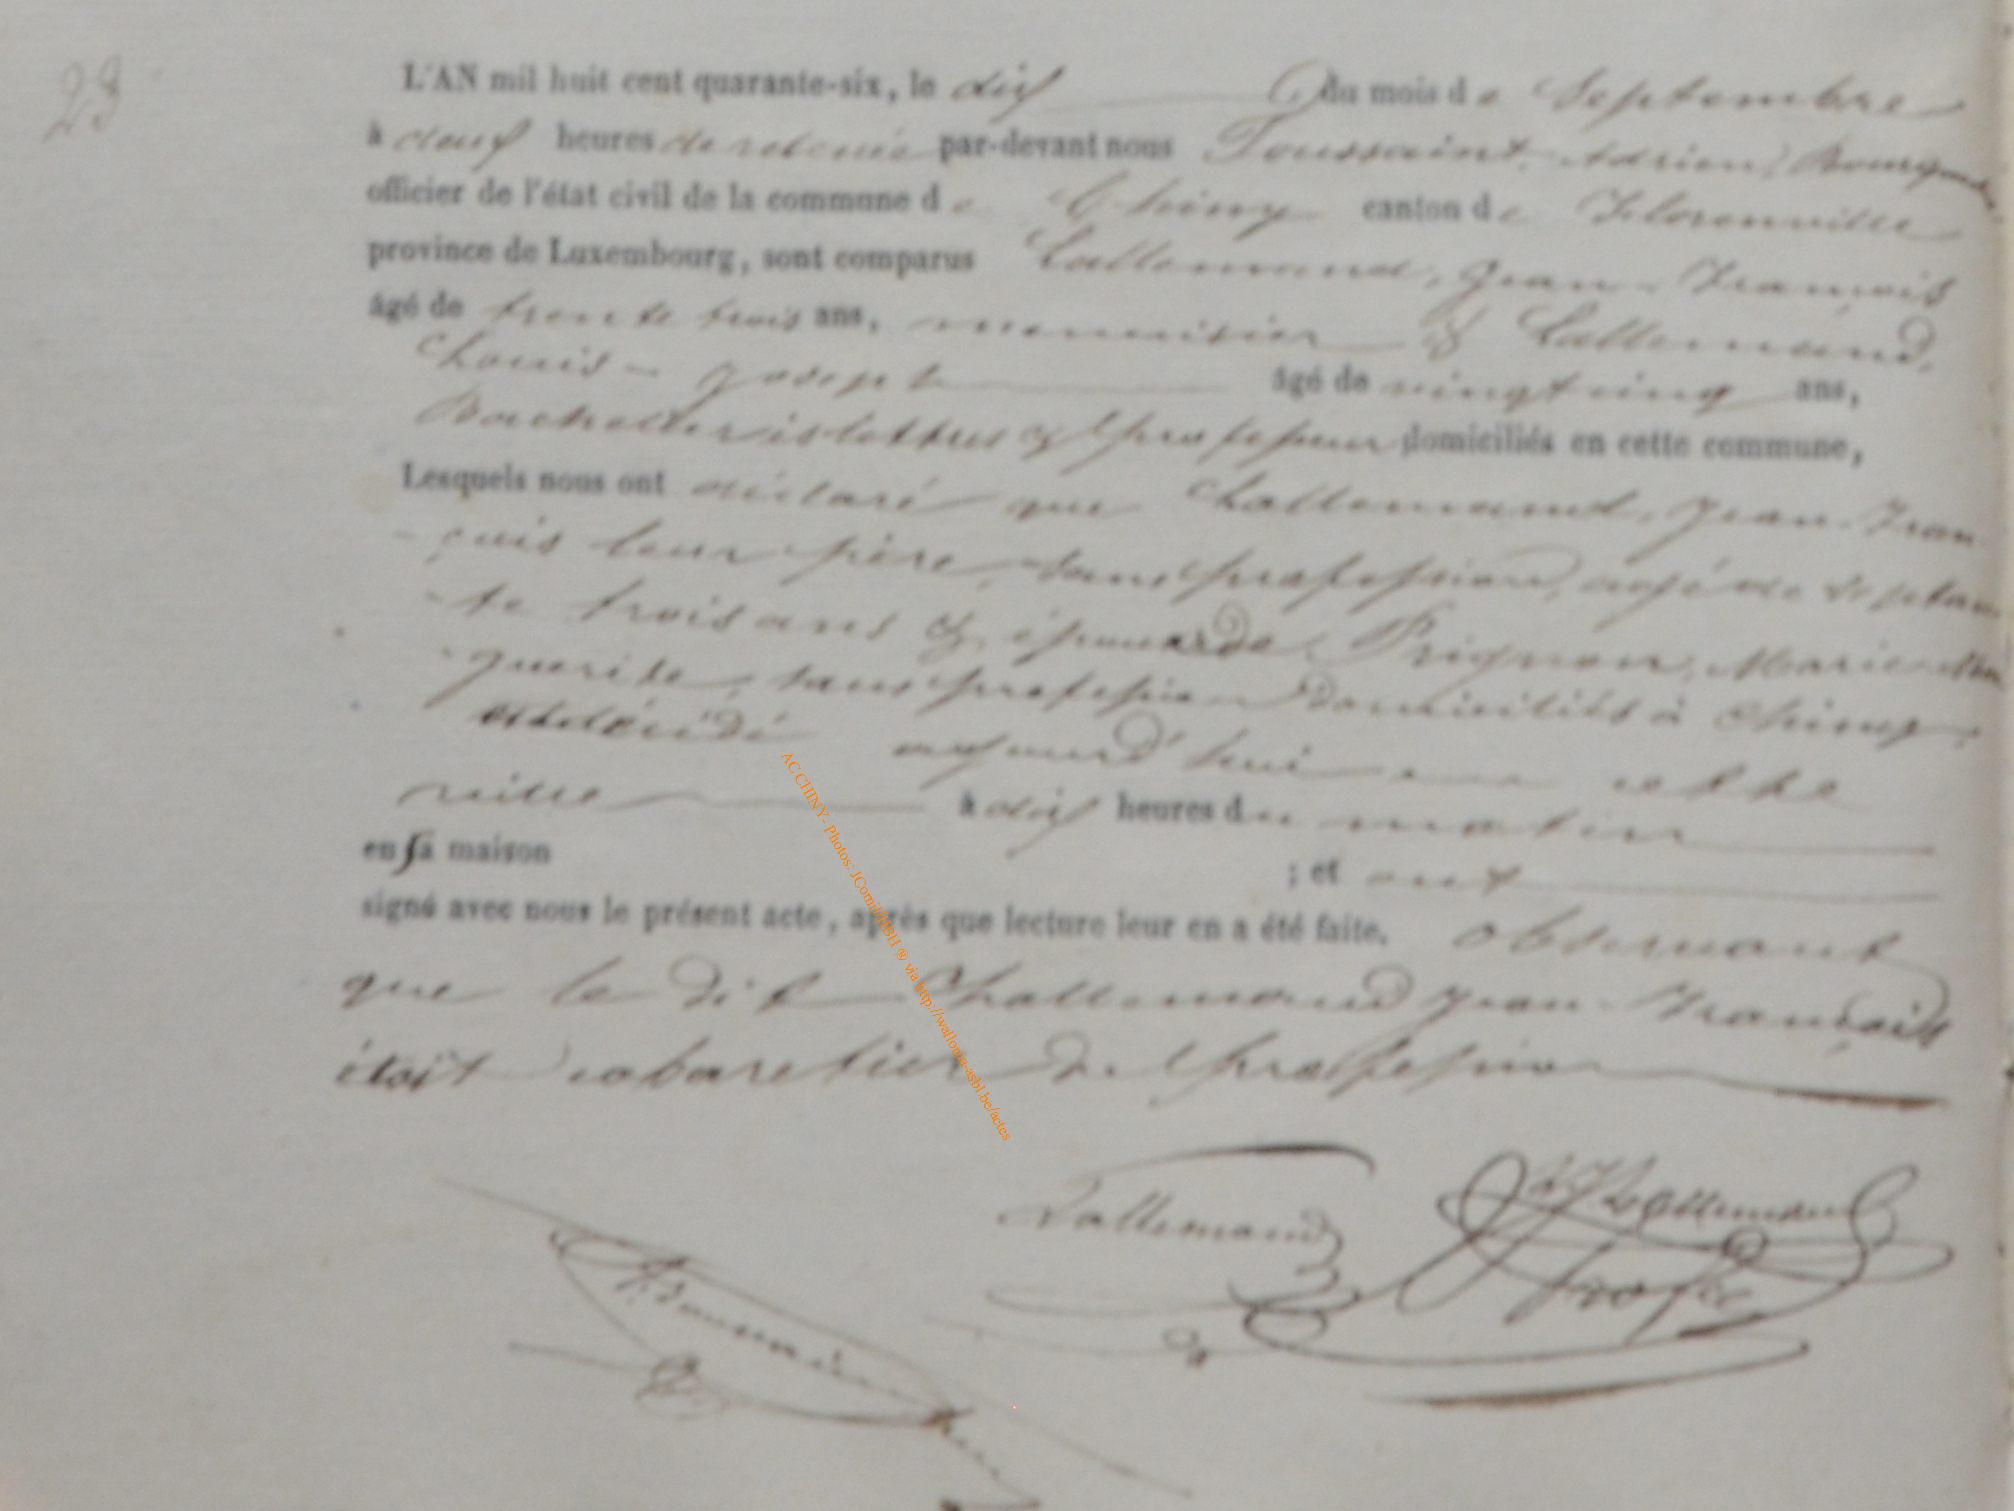 23
L'AN mil huit cent quarante-six, le dix du mois de Septembre
à deux heures de relevée par-devant nous Toussaint, Adrien,
officier de l'état civil de la commune de Chiny canton de Florenville
province de Luxembourg, sont comparus Lallemand, Jean-François
âgé de trente trois ans, menuisier & Lallemand,
Louis-Joseph âgé de vingt cinq ans,
Bachelier es lettres & professeur domiciliés en cette commune,
Lesquels nous ont déclaré que Lallemand, Jean-Fran-
-çois leur père, sans profession, agé de septan-
-te trois ans & époux de Prignon, Marie-Mar-
-guerite, sans profession domiciliés à Chiny,
est décédé aujourd'hui en cette
ville à dix heures du matin
en sa maison ; et ont
signé avec nous le présent acte, après que lecture leur en a été faite. observant
que le dit Lallemand Jean-François
étoit cabaretier de profession
Lallemand
Lallemand
ACCHINY- Photos: JComij/GBH ® via http://wallonia-asbl.be/actes